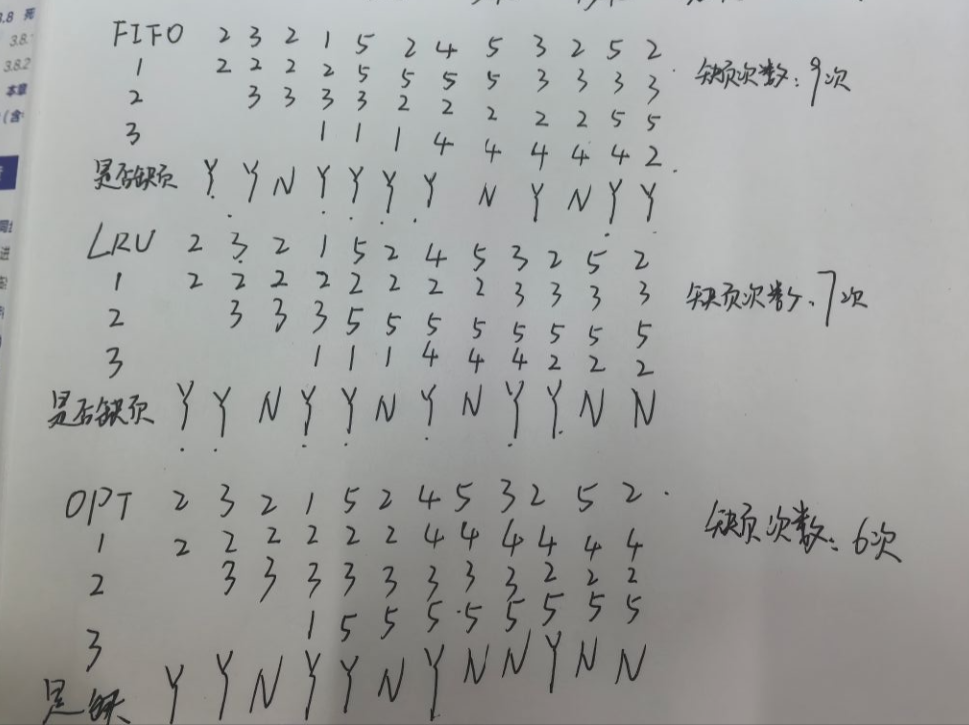 3.8 死
3.8.1
3.8.2
本章
(含
FIFO 2 3 2 1 5 2 4 5 3 2 5 2
1 2 2 2 2 5 5 5 5 3 3 3 3
缺页次数：9次
2 3 3 3 3 2 2 2 2 2 5 5
3 1 1 1 4 4 4 4 4 2
是否缺页 Y Y N Y Y Y Y N Y N Y Y
LRU 2 3 2 1 5 2 4 5 3 2 5 2
1 2 2 2 2 2 2 2 2 3 3 3 3
缺页次数、7次
2 3 3 3 5 5 5 5 5 5 5 5
3 1 1 1 4 4 4 2 2 2
是否缺页 Y Y N Y Y N Y N Y Y N N
OPT 2 3 2 1 5 2 4 5 3 2 5 2
缺页次数：6次
1 2 2 2 2 2 2 4 4 4 4 4 4
2 3 3 3 3 3 3 3 3 2 2 2
3 1 5 5 5 5 5 5 5 5
是缺 Y Y N Y Y N Y N N Y N N